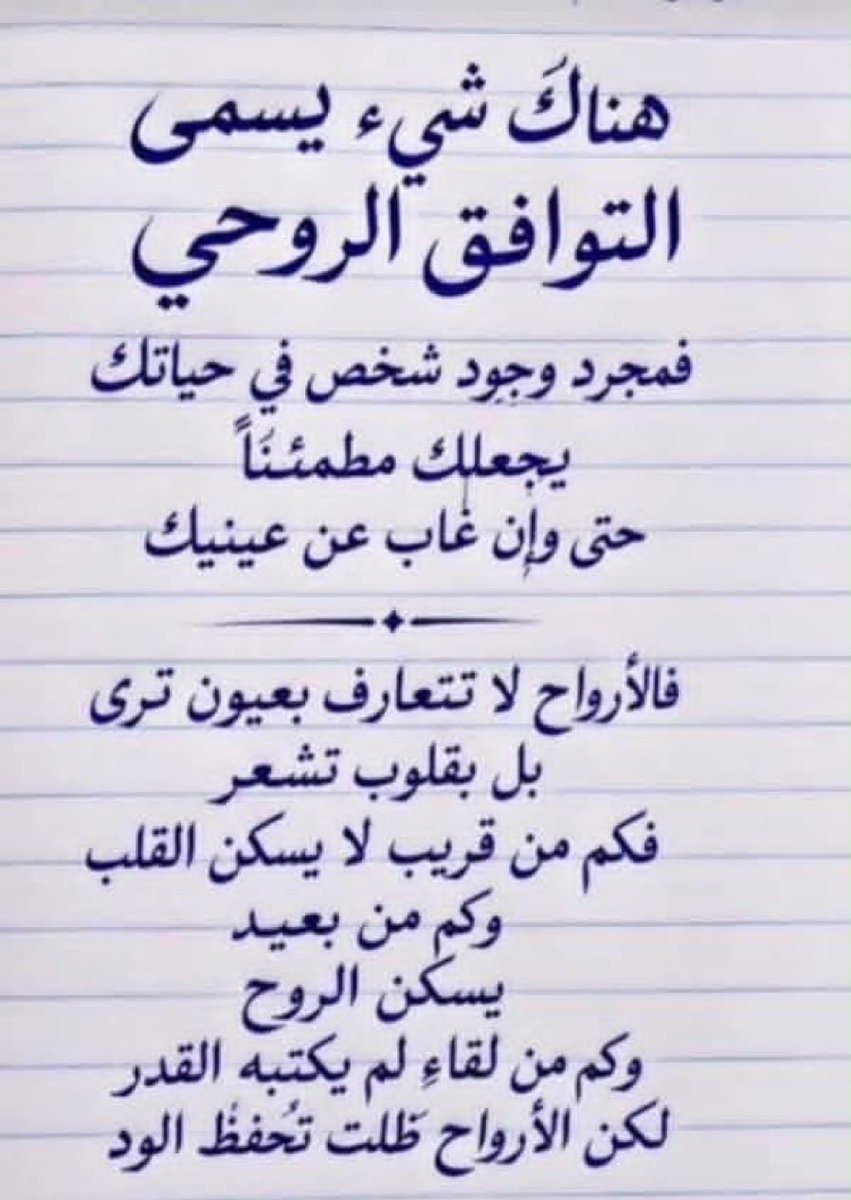 هناكَ شيء يسمى
التوافق الروحي
فمجرد وجود شخص في حياتك
يجعلك مطمئنَاً
حتى وإن غاب عن عينيك
فالأرواح لا تتعارف بعيون ترى
بل بقلوب تشعر
فكم من قريب لا يسكن القلب
وكم من بعيد
يسكن الروح
وكم من لقاءِ لم يكتبه القدر
لكن الأرواح ظلت تحفظ الود